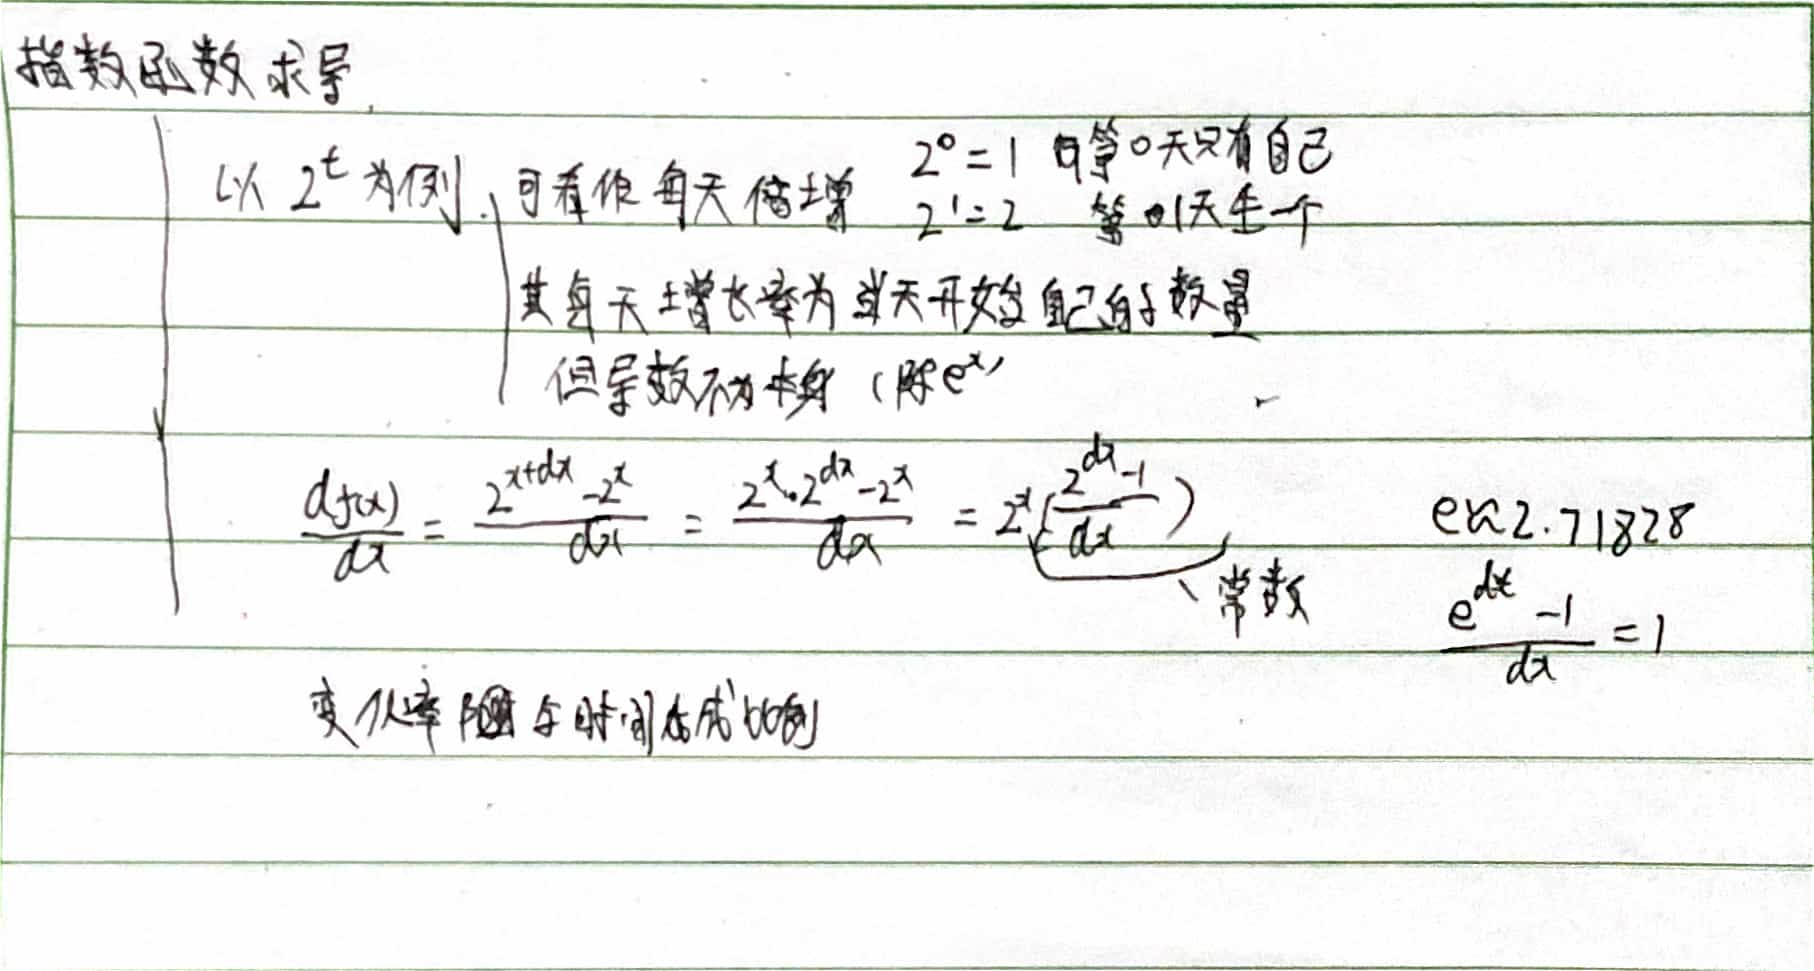 指数函数求导
以 2^t 为例. 可看作每天倍增 2^0 = 1 第0天只有自己
2^1 = 2 第1天生一个
其每天增长率为当天开始自己的数量
但导数不为本身 (除e^x)
df(x)/dx = (2^{x+dx} - 2^x)/dx = (2^x · 2^{dx} - 2^x)/dx = 2^x((2^{dx} - 1)/dx) e≈2.71828
常数 (e^{dx} - 1)/dx = 1
变化率与时间成比例